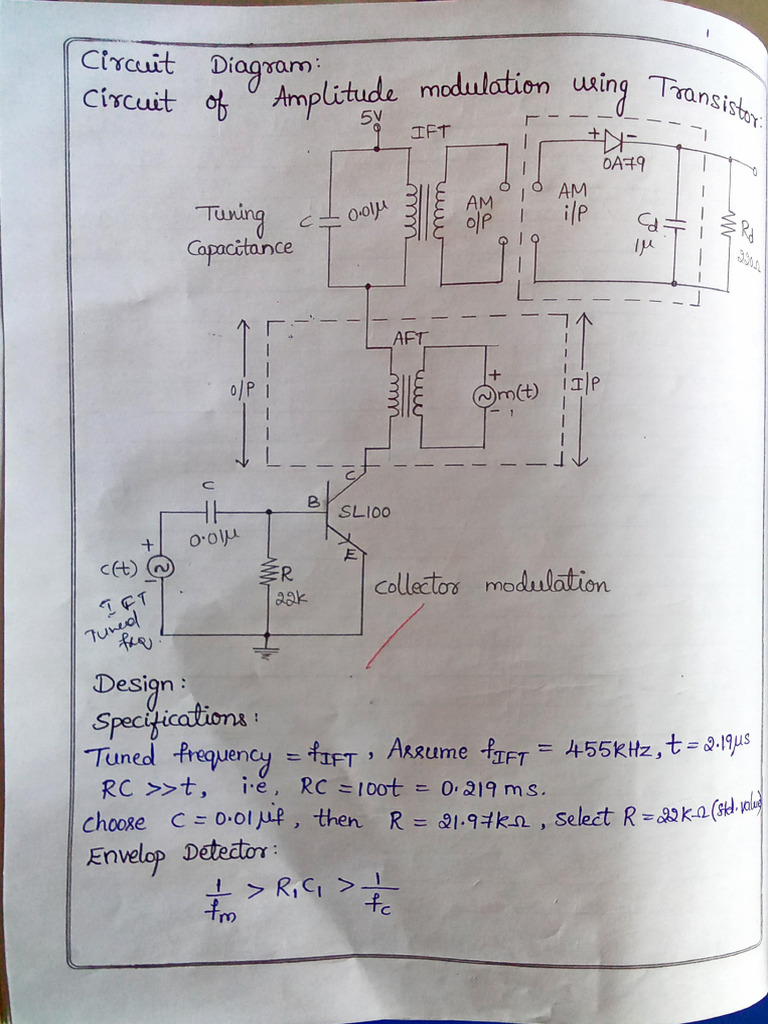 1
Circuit Diagram:
Circuit of Amplitude modulation using Transistor:
5V
IFT
+ -
OA79
Tuning
Capacitance
C
0.01µ
AM
O/P
AM
i/P
Cd
1µ
Rd
AFT
O/P
+
m(t)
-
I/P
C
0.01µ
B
C
SL100
E
+
c(t)
-
IFT
Tuned
freq.
R
22K
collector modulation
Design:
Specifications:
Tuned frequency = fIFT, Assume fIFT = 455kHz, t = 2.19µs
RC >>t, i.e, RC = 100t = 0.219 ms.
Choose C = 0.01µf, then R = 21.97kΩ, Select R = 22kΩ (std. value)
Envelop Detector:
1/fm > R1C1 > 1/fc